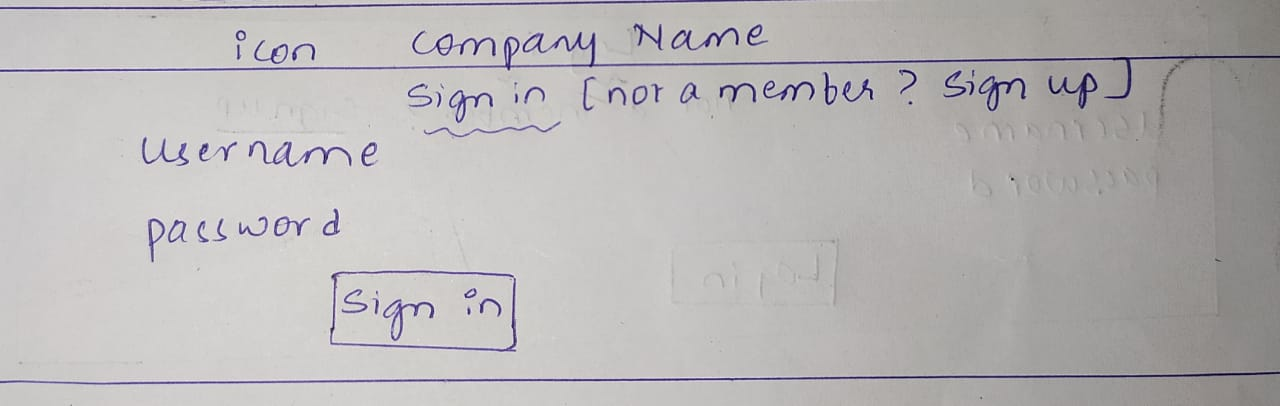 icon company Name
Sign in [not a member? Sign up]
Username
password
Sign in